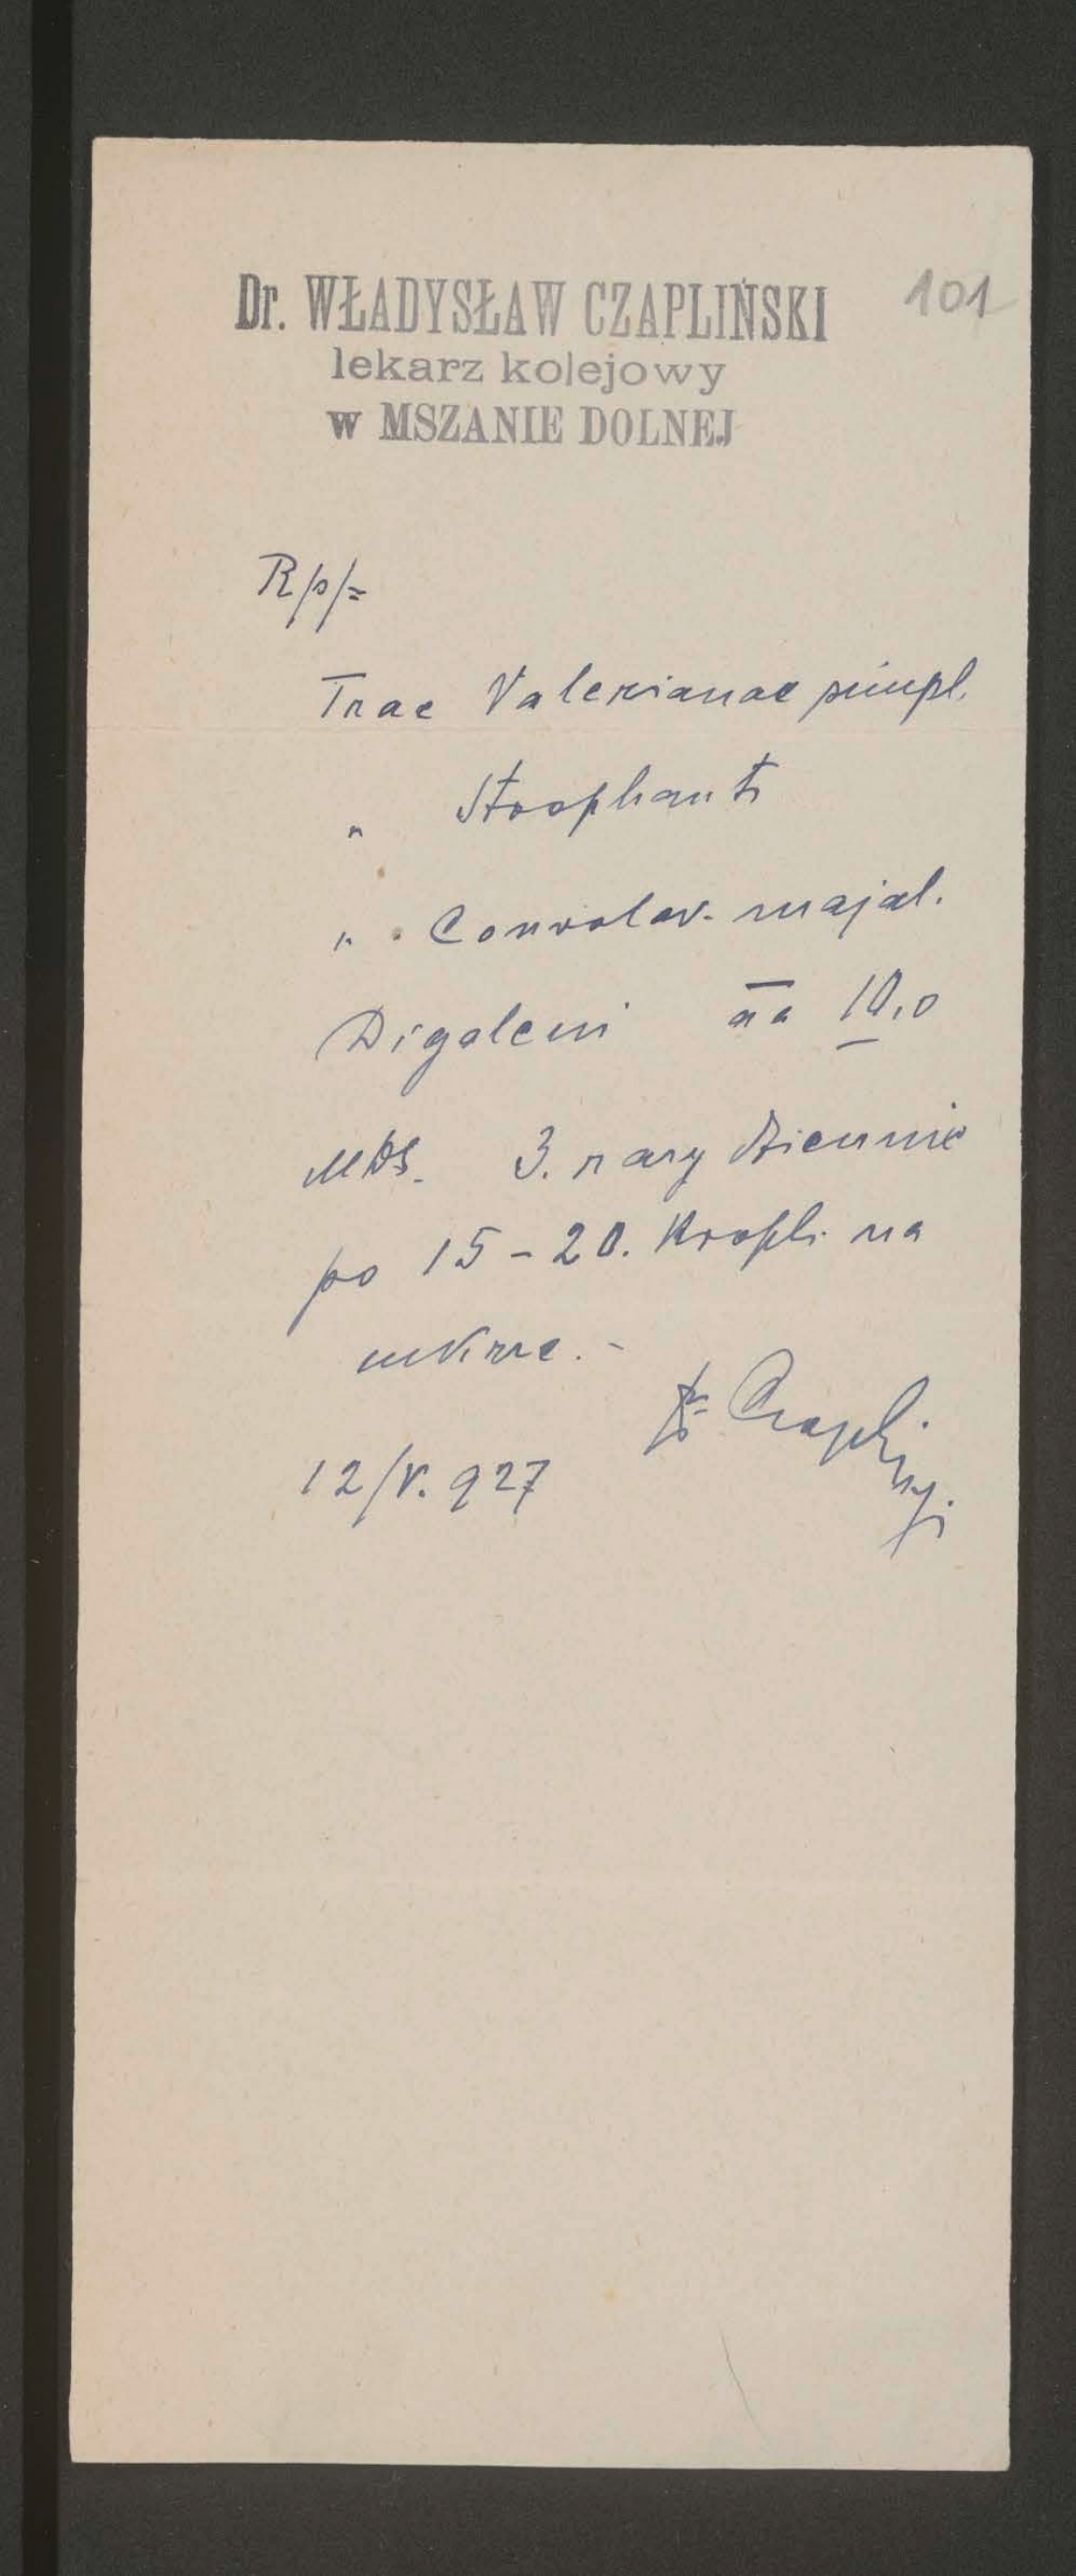 Dr. WŁADYSŁAW CZAPLIŃSKI
101
lekarz kolejowy
w MSZANIE DOLNEJ
R/p/=
Trae Valerianae simpl.
" Strophanti
" Convolav. majal.
Digaleni aa 10,0
MDS. 3. razy dziennie
po 15-20. Kropli na
cukrze.-
Dr Czapliński
12/V. 927